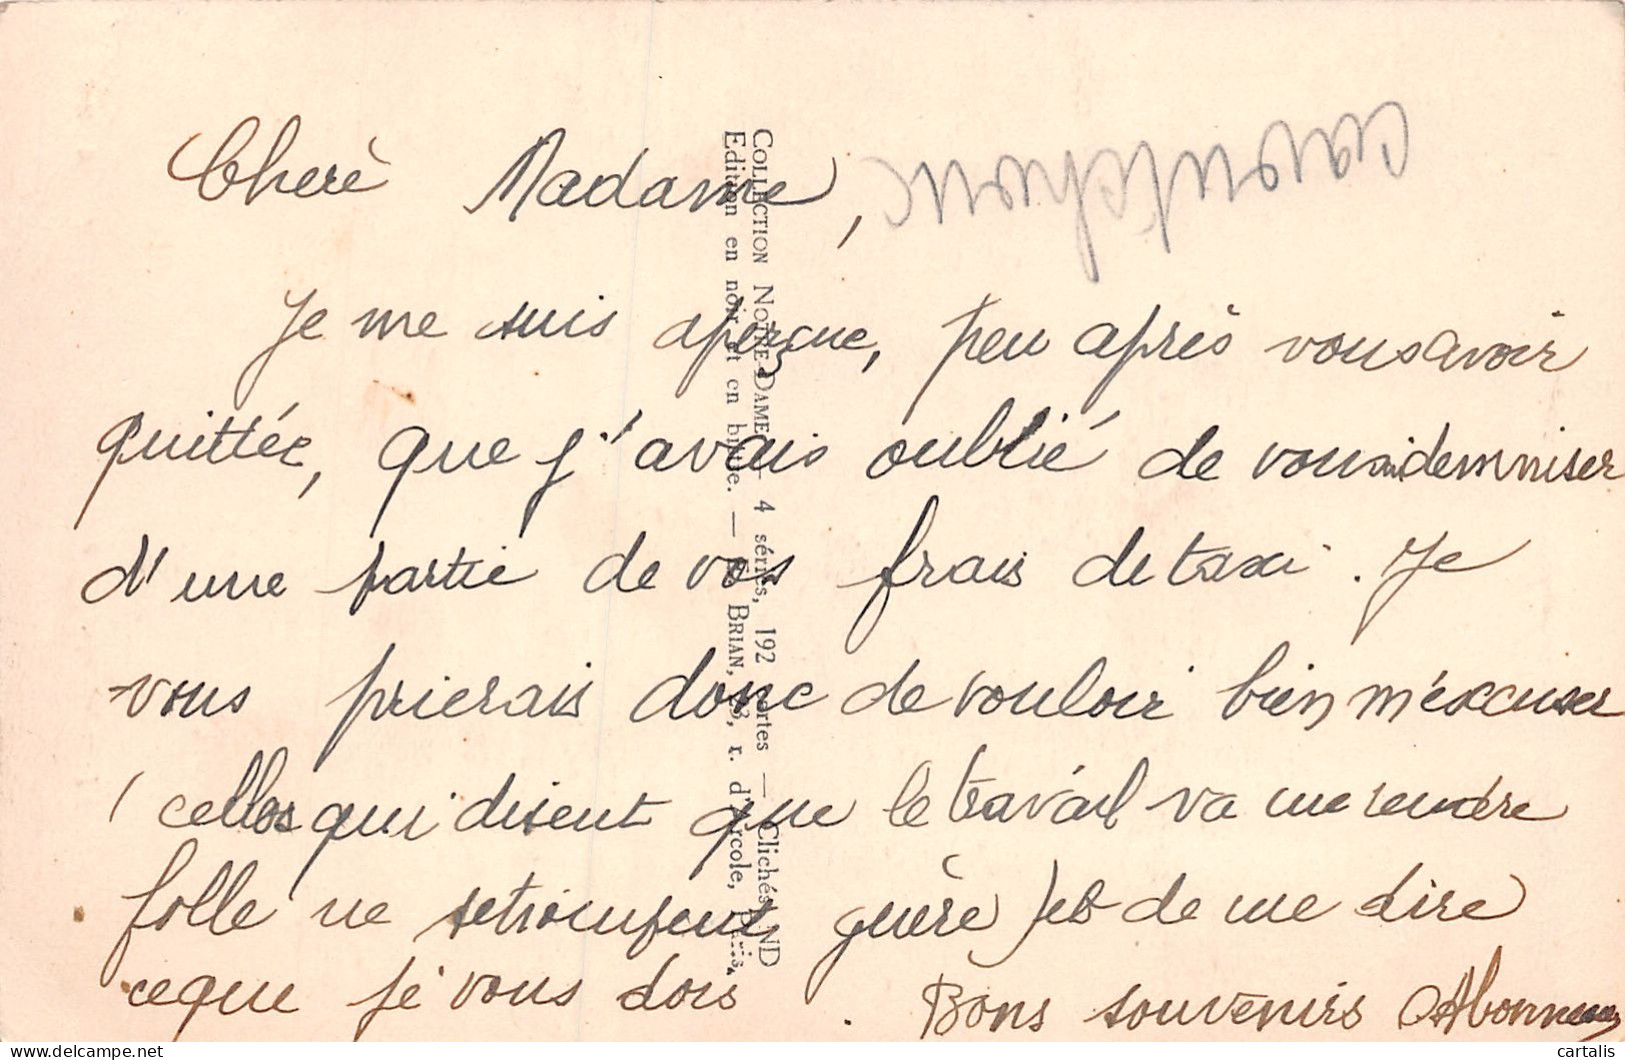 Cherè Madame,
caoutchouc
Je me suis aperçue, peu après vous avoir
quittée, que j'avais oublié de vous indemniser
d'une partie de vos frais de taxi. Je
vous prierais donc de vouloir bien m'excuser
(celles qui disent que le travail va me rendre
folle ne se trompent guère) et de me dire
ce que je vous dois. Bons souvenirs
COLLECTION NOTRE-DAME — 4 séries, 192 cartes — Clichés ND
Edition en noir et en bleue. — BRIAN, 23, r. d'Arcole, Paris.
cartalis